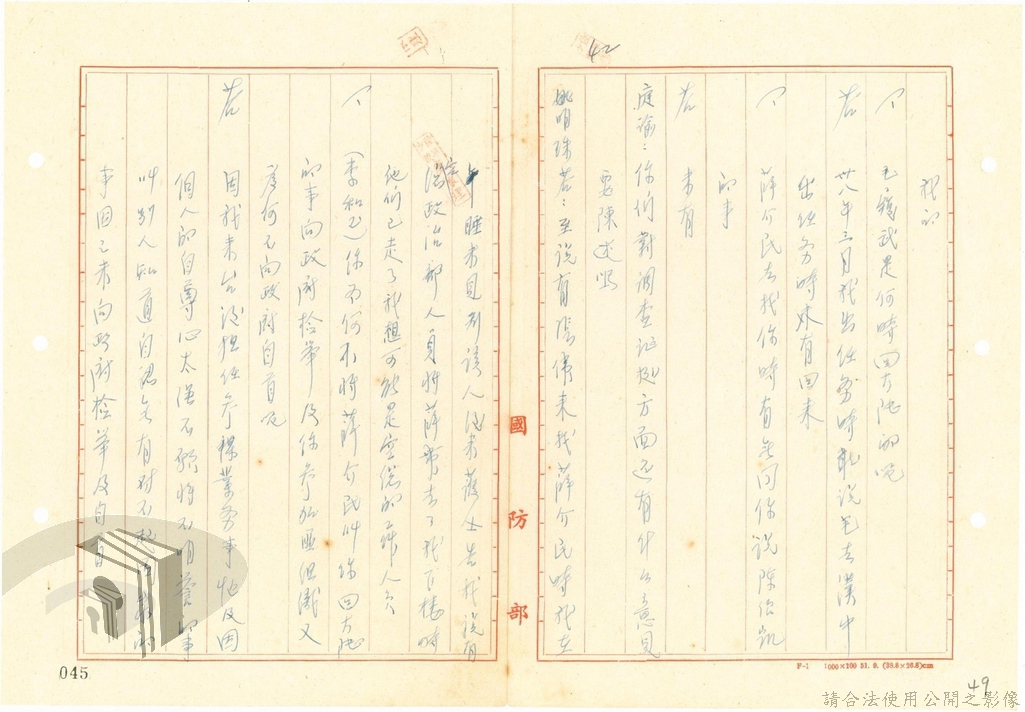 42
我的
問 毛錢武是何時回大陸的呢
答 卅八年三月我出任務時就說毛去漢中
出任務時沒有回來
問 薛介民去找你時有無問你說陳紹凱
的事
答 未有
庭諭：你們對調查証據方面還有什么意見
要陳述嗎
姚明珠答：至說有張偉來找薛介民時我在
午睡未見到該人後來護士告我說有
政治部人員將薛帶去了我下樓時
他們已走了我想可能是空總的工作人員
問 (李和玉)你為何不將薛介民叫你回大陸
的事向政府檢舉及你參加匪組織又
為何不向政府自首呢
答 因我來台後担任參謀業務事忙及因
個人的自尊心太深不願將不明譽的事
叫別人知道自己
事因之未向政府檢舉及自首
國防部
F-1 1000×100 51. 9. (38.6×26.8)cm
045
49
請合法使用公開之影像